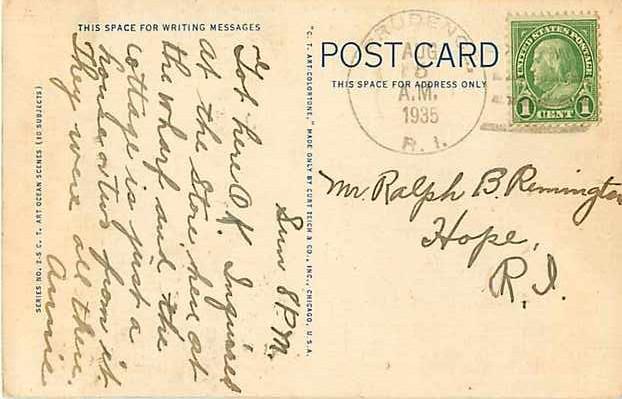 THIS SPACE FOR WRITING MESSAGES
Sun 8 P.M.
Got here O.K. Inquired
at the Store here at
the wharf and the
cottage is just a
house or two from it.
They were all there.
Annie
SERIES NO. 2-S C. T. ART OCEAN SCENES (10 SUBJECTS)
"C. T. ART-COLORTONE," MADE ONLY BY CURT TEICH & CO., INC., CHICAGO, U.S.A.
POST CARD
THIS SPACE FOR ADDRESS ONLY
PRUDENCE
AUG
A.M.
1935
R. I.
UNITED STATES POSTAGE
1 CENT 1
Mr. Ralph B. Remington
Hope,
R.I.